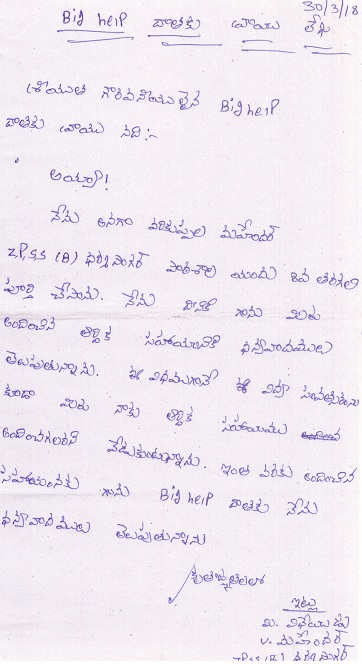 30/3/18
Big help దాతకు వ్రాయు లేఖ
శ్రీయుత గౌరవనీయులైన Big help
దాతకు వ్రాయు నది:-
అయ్యా!
నేను అనగా వరికుప్పల మహేందర్
Z.P.S.S (B) పాఠశాల యందు 8వ తరగతి
పూర్తి చేసాను. నేను దీనికి గాను మీరు
అందించిన ఆర్థిక సహాయానికి ధన్యవాదములు
తెలుపుతున్నాను. ఈ విధముగానే ఈ విద్యా సంవత్సరం
కూడా మీరు నాకు ఆర్థిక సహాయము
అందించగలరని వేడుకుంటున్నాను. ఇంత వరకు అందించిన
సహాయంనకు గాను Big help దాతకు నేను
ధన్యవాదములు తెలుపుతున్నాను
కృతజ్ఞతలతో
ఇట్లు
మీ విధేయుడు
V. మహేందర్
ZPSS (B)